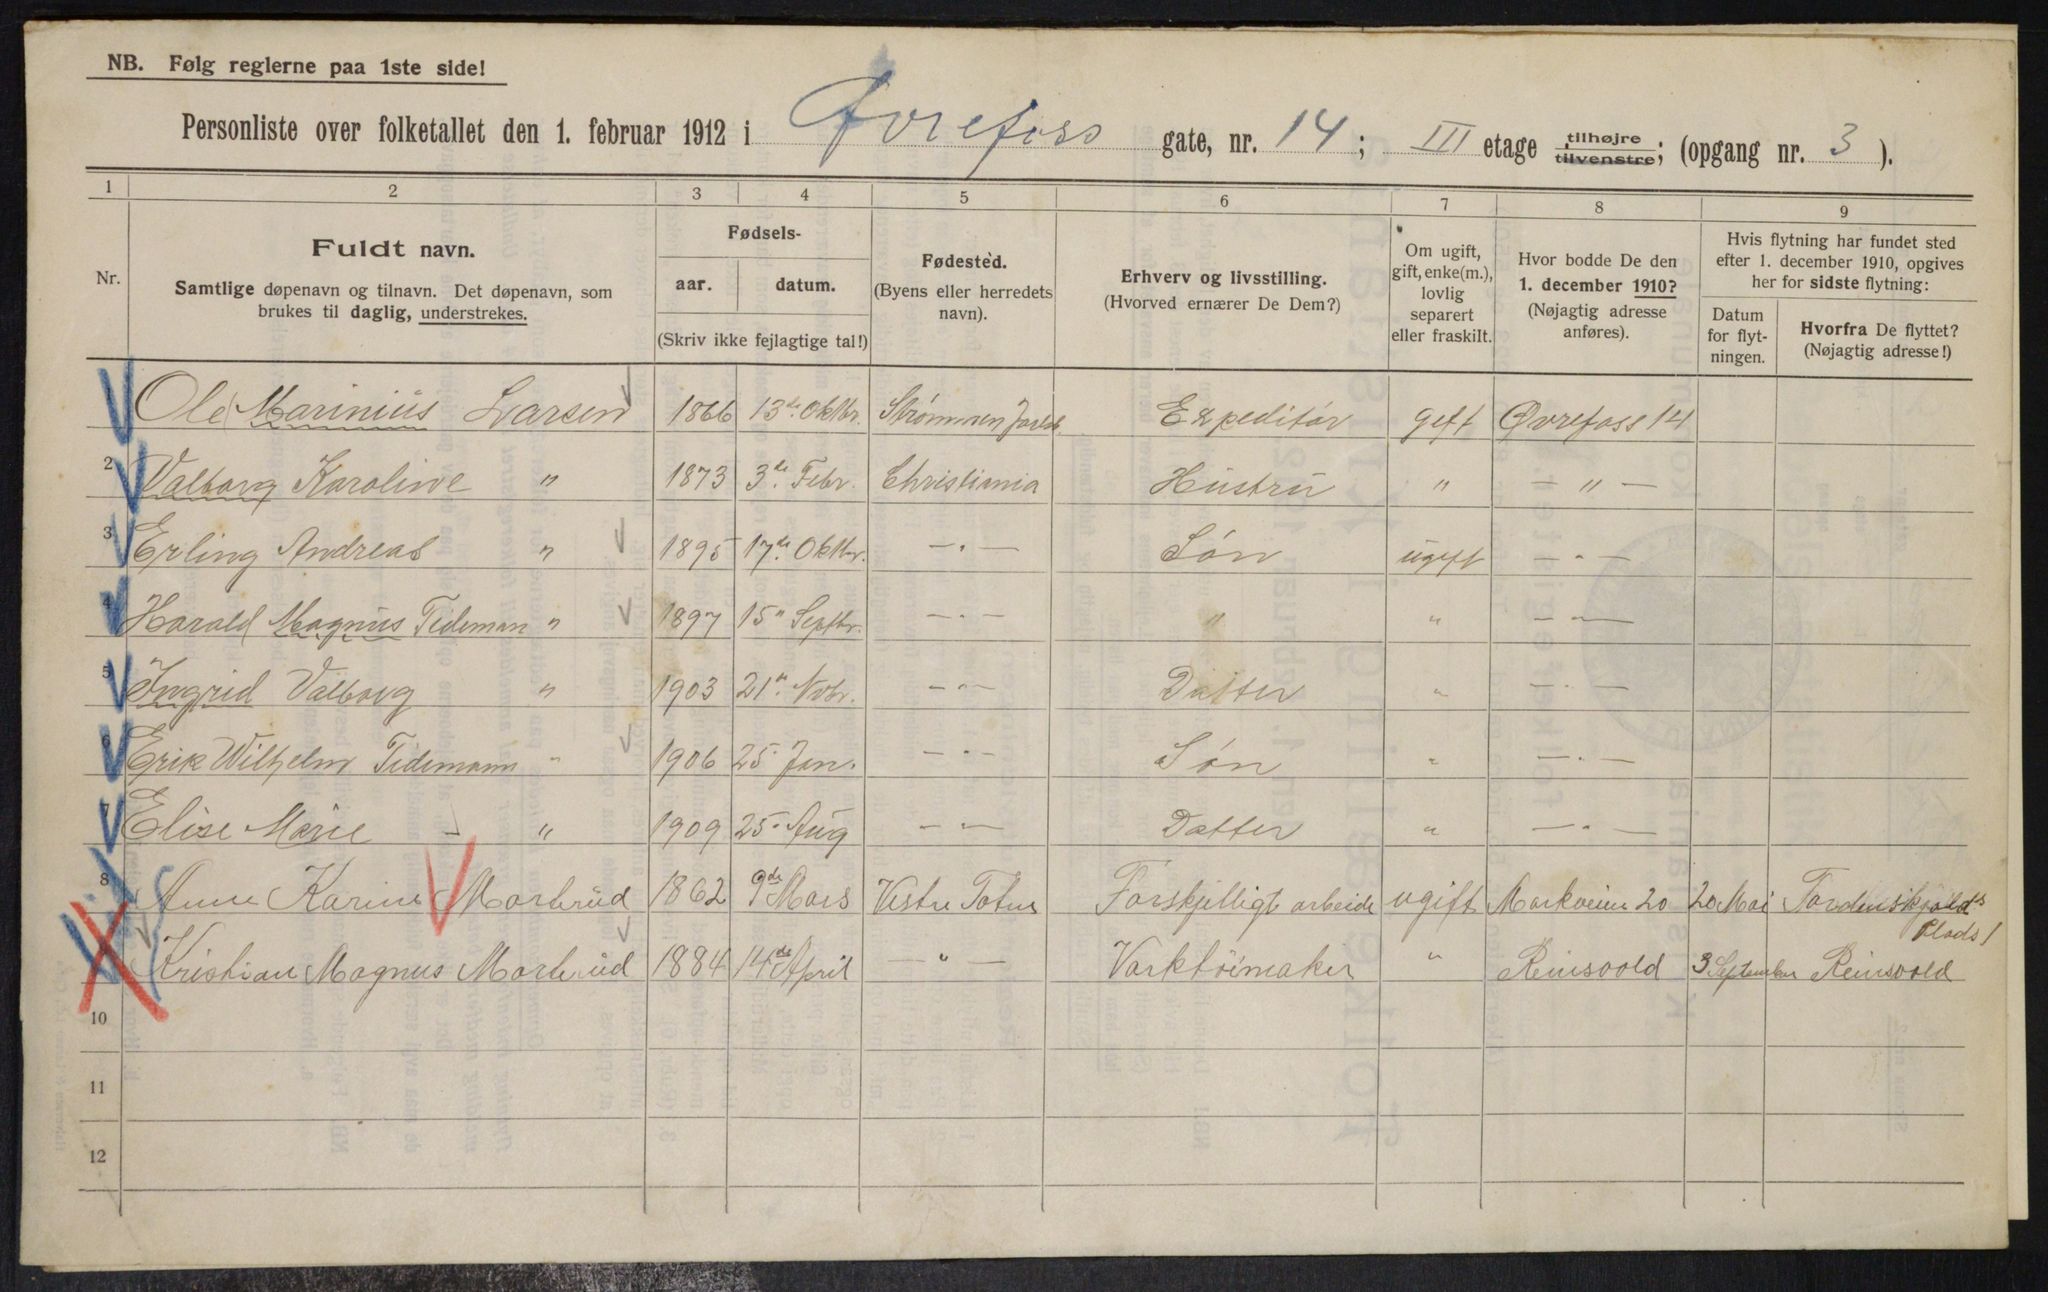 NB. Følg reglerne paa 1ste side!
Personliste over folketallet den 1. februar 1912 i Øvrefoss gate, nr. 14; III etage tilhøjre tilvenstre; (opgang nr. 3).
1 2 3 4 5 6 7 8 9
Nr. Fuldt navn. Samtlige døpenavn og tilnavn. Det døpenavn, som brukes til daglig, understrekes.
Fødsels- aar. datum. (Skriv ikke fejlagtige tal!)
Fødested. (Byens eller herredets navn).
Erhverv og livsstilling. (Hvorved ernærer De Dem?)
Om ugift, gift, enke(m.), lovlig separert eller fraskilt.
Hvor bodde De den 1. december 1910? (Nøjagtig adresse anføres).
Hvis flytning har fundet sted efter 1. december 1910, opgives her for sidste flytning:
Datum for flytningen. Hvorfra De flyttet? (Nøjagtig adresse!)
1 Ole Marinius Larsen 1866 13de Oktbr. Strømmen Jarlsb. Expeditør gift Øvrefoss 14
2 Valborg Karoline " 1873 3de Febr. Christiania Hustru " — " —
3 Erling Andreas " 1895 17de Oktbr. — " — Søn ugift — " —
4 Harald Magnus Tideman " 1897 15" Septbr. — " — " " — " —
5 Ingrid Valborg " 1903 21" Nvbr. — " — Datter " — " —
6 Erik Wilhelm Tidemann " 1906 25. Jan. — " — Søn " — " —
7 Elise Marie " 1909 25. Aug — " — Datter " — " —
8 Anne Karine Marterud 1862 9de Mars Vestre Toten Forskjelligt arbeide ugift Markveien 20 20 Mai Tordenskjolds Plads 1
9 Kristian Magnus Marterud 1884 14de April — " — Værktøimaker " Reinsvold 3 September Reinsvold
10
11
12